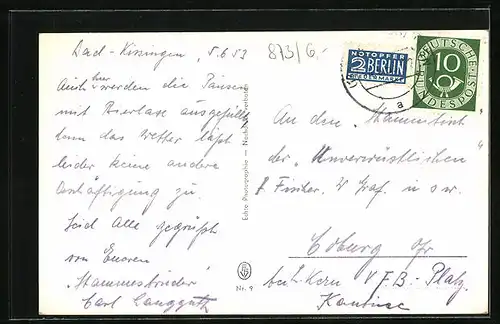 Bad-Kissingen, 5.6.53
873/6.-
Auch hier werden die Pausen
mit Bierlase ausgefüllt
denn das Wetter läßt
leider keine andere
Beschäftigung zu.
Seid Alle gegrüßt
von Eueren
"Stammesbrüder"
Carl Langguth
Echte Photographie — Nachdruck verboten
Nr. 9
NOTOPFER
2 BERLIN
STEUERMARKE
DEUTSCHE
10
BUNDESPOST
a
An den "Stammtisch"
der "Unverwüstlichen"
P. Fischer, W. Graf u s w.
Coburg Ofr
bei L. Kern V.F.B.-Platz.
Kantine